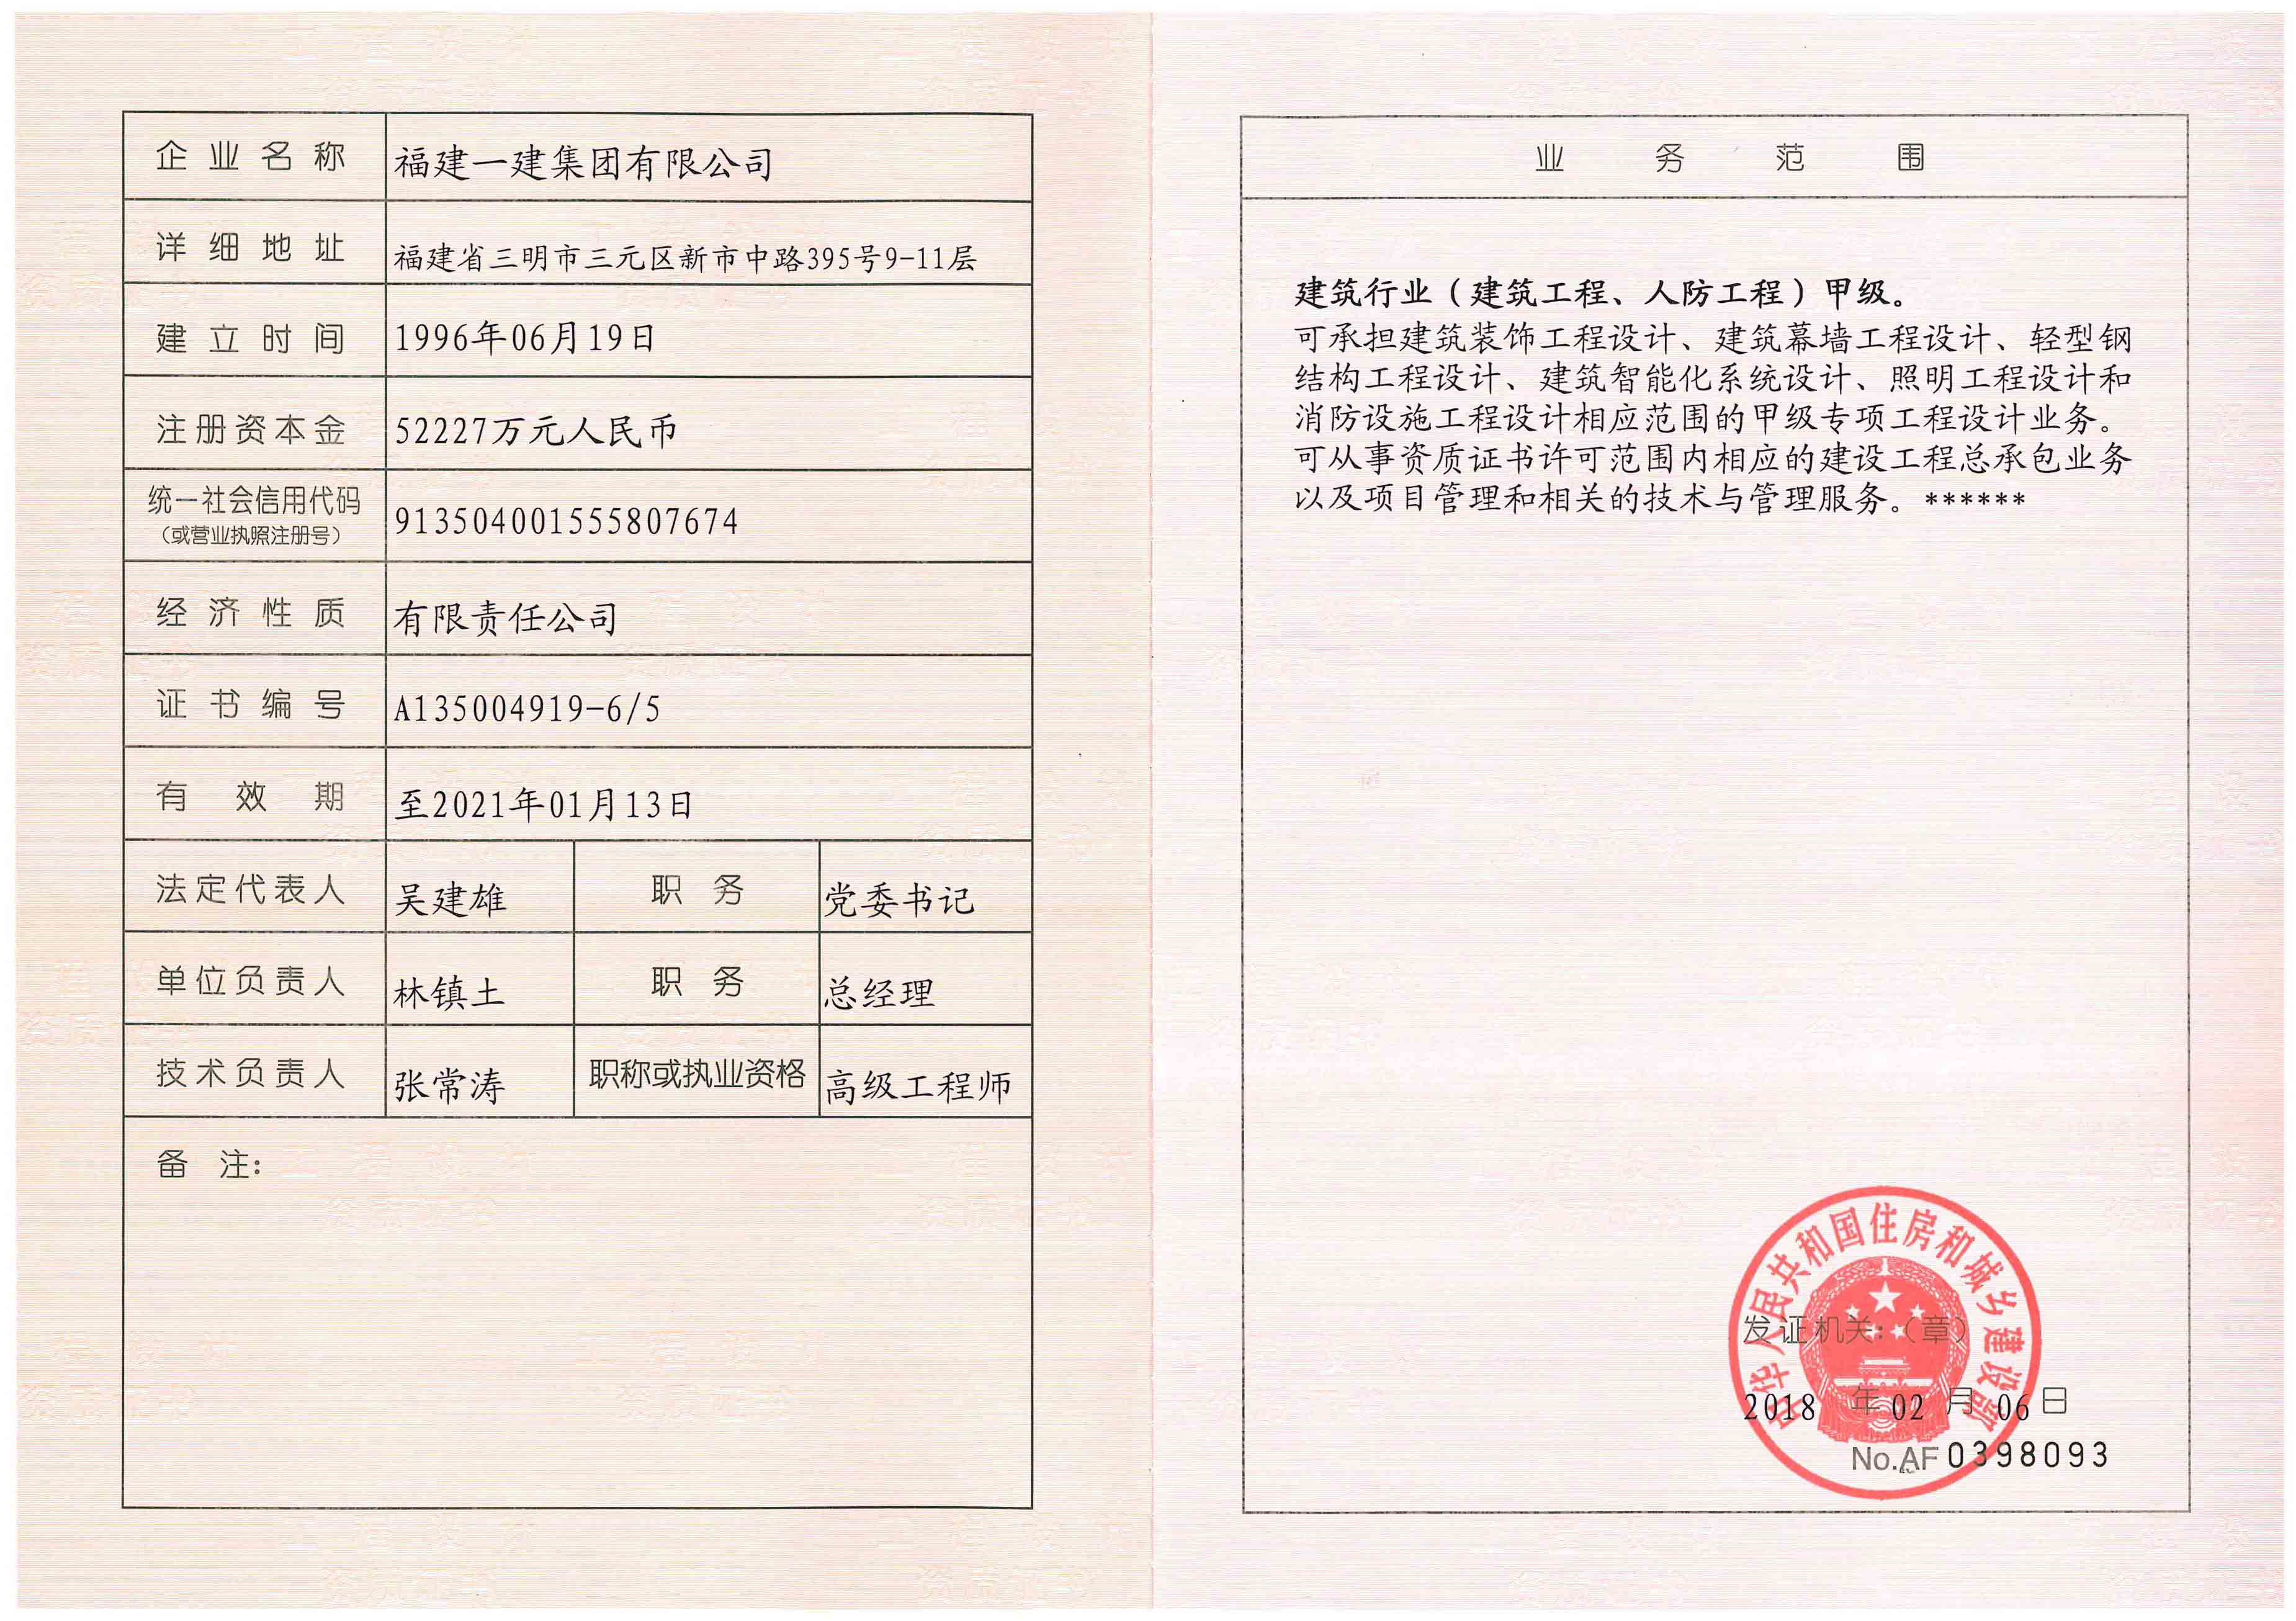 企业名称 福建一建集团有限公司
详细地址 福建省三明市三元区新市中路395号9-11层
建立时间 1996年06月19日
注册资本金 52227万元人民币
统一社会信用代码
（或营业执照注册号） 913504001555807674
经济性质 有限责任公司
证书编号 A135004919-6/5
有效期 至2021年01月13日
法定代表人 吴建雄 职务 党委书记
单位负责人 林镇土 职务 总经理
技术负责人 张常涛 职称或执业资格 高级工程师
备注：
业务范围
建筑行业（建筑工程、人防工程）甲级。
可承担建筑装饰工程设计、建筑幕墙工程设计、轻型钢
结构工程设计、建筑智能化系统设计、照明工程设计和
消防设施工程设计相应范围的甲级专项工程设计业务。
可从事资质证书许可范围内相应的建设工程总承包业务
以及项目管理和相关的技术与管理服务。******
中华人民共和国住房和城乡建设部
发证机关：（章）
2018年02月06日
No.AF 0398093